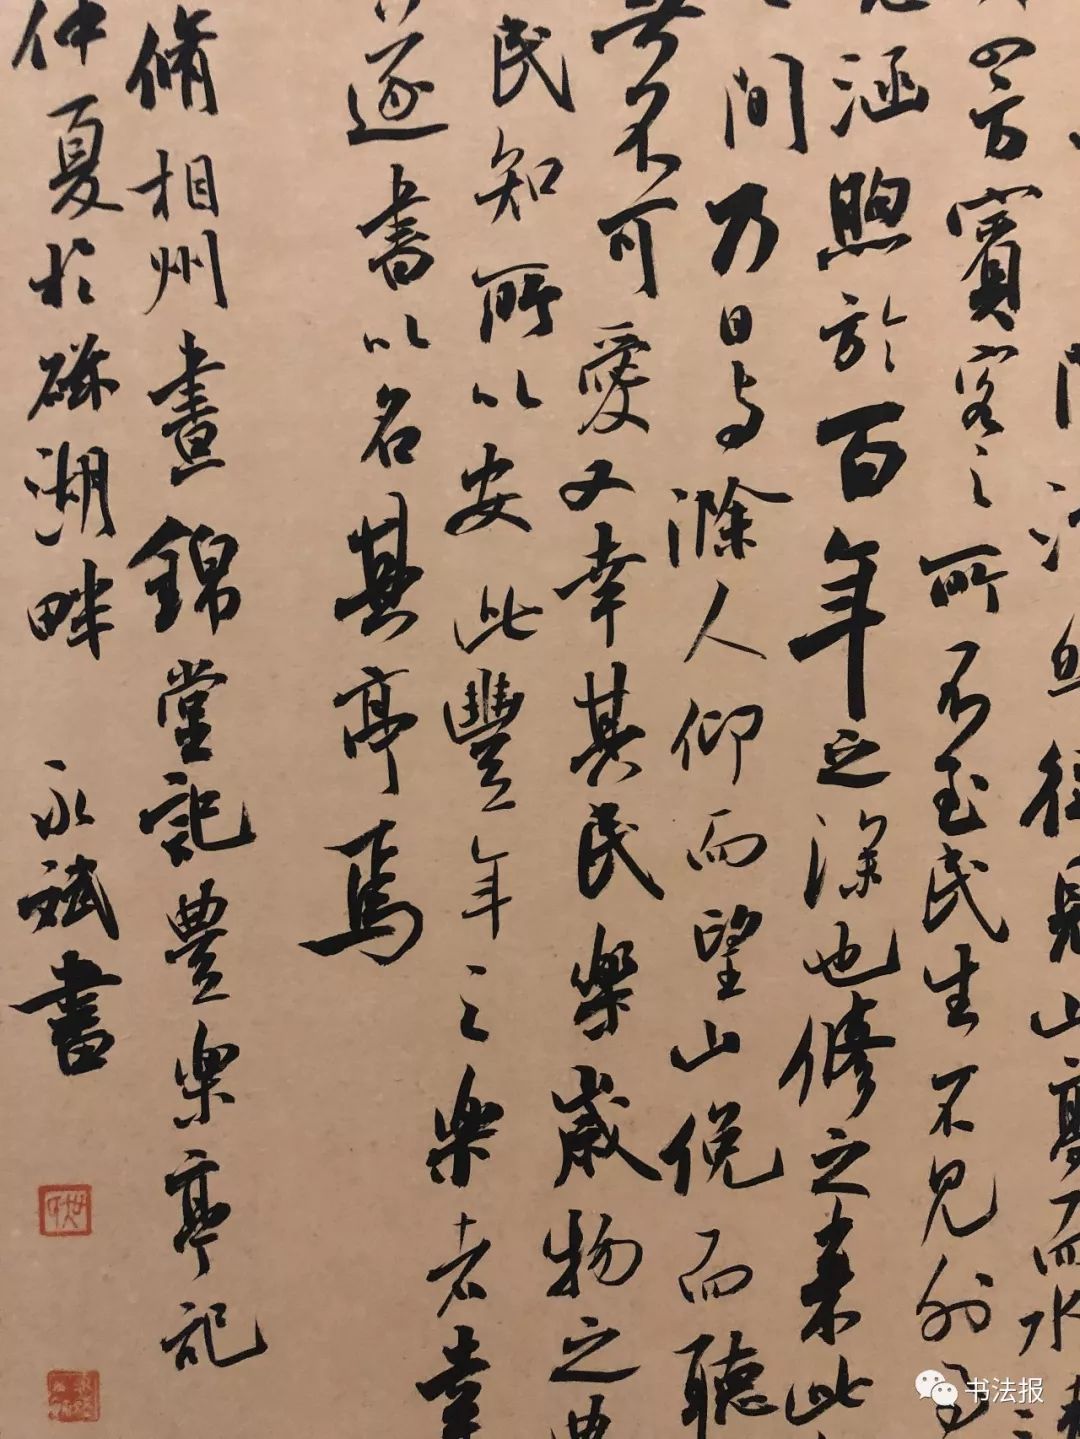 四方賓客之所不至民生不見外
涵煦於百年之深也修之来此
間乃日與滁人仰而望山俛而聽
不可愛又幸其民樂歲物之豊
民知所以安此豐年之樂者幸
遂書以名其亭焉
脩相州晝錦堂記豊樂亭記
仲夏於磁湖畔 永斌書
书法报